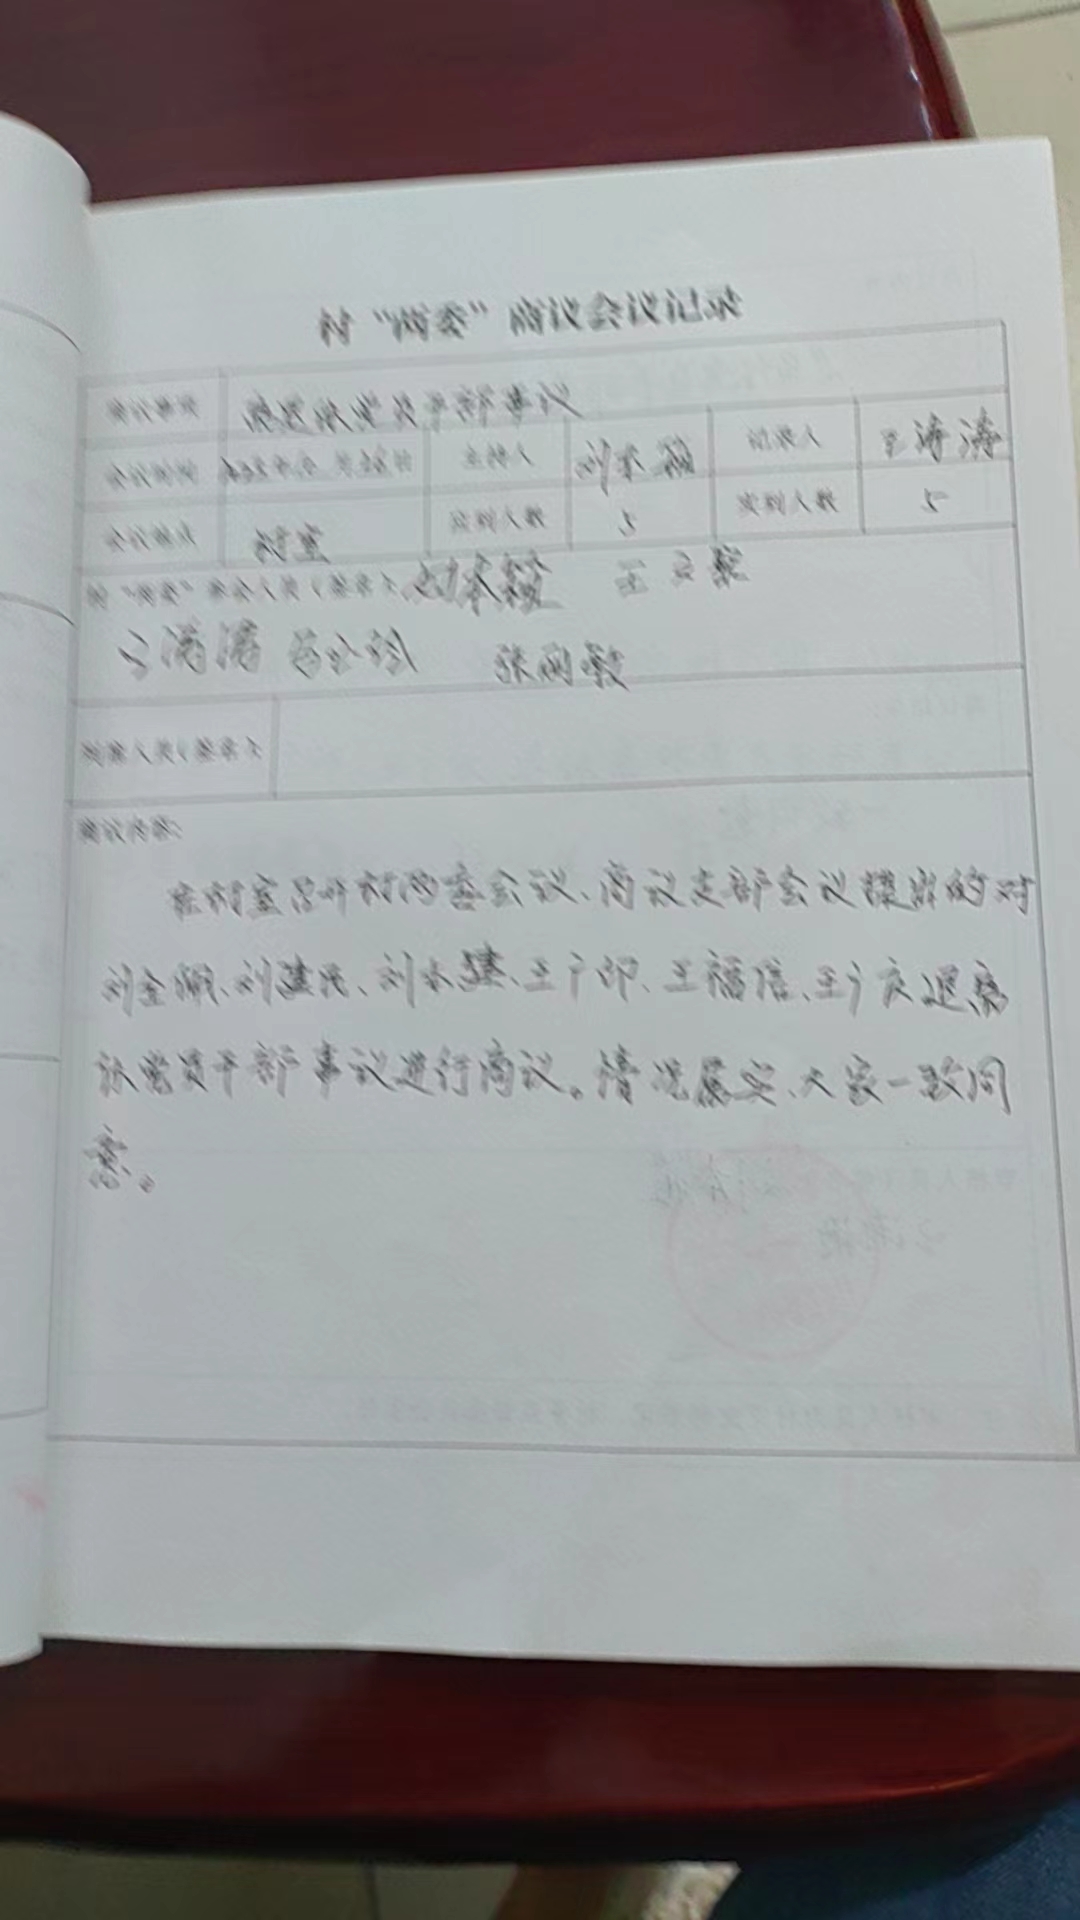 村“两委”商议会议记录
商议事项 党员干部事议
会议时间 主持人 刘本颖 记录人 王涛涛
会议地点 村室 应到人数 5 实到人数 5
村“两委”参会人员（签字）：刘本颖 王
张丽敏
列席人员（签字）：
商议内容：
在村室召开村两委会议、商议支部会议提出的对
刘金佩、刘建民、刘本建、王广印、王福信、王广庆退
党员干部事议进行商议。情况属实、大家一致同
意。